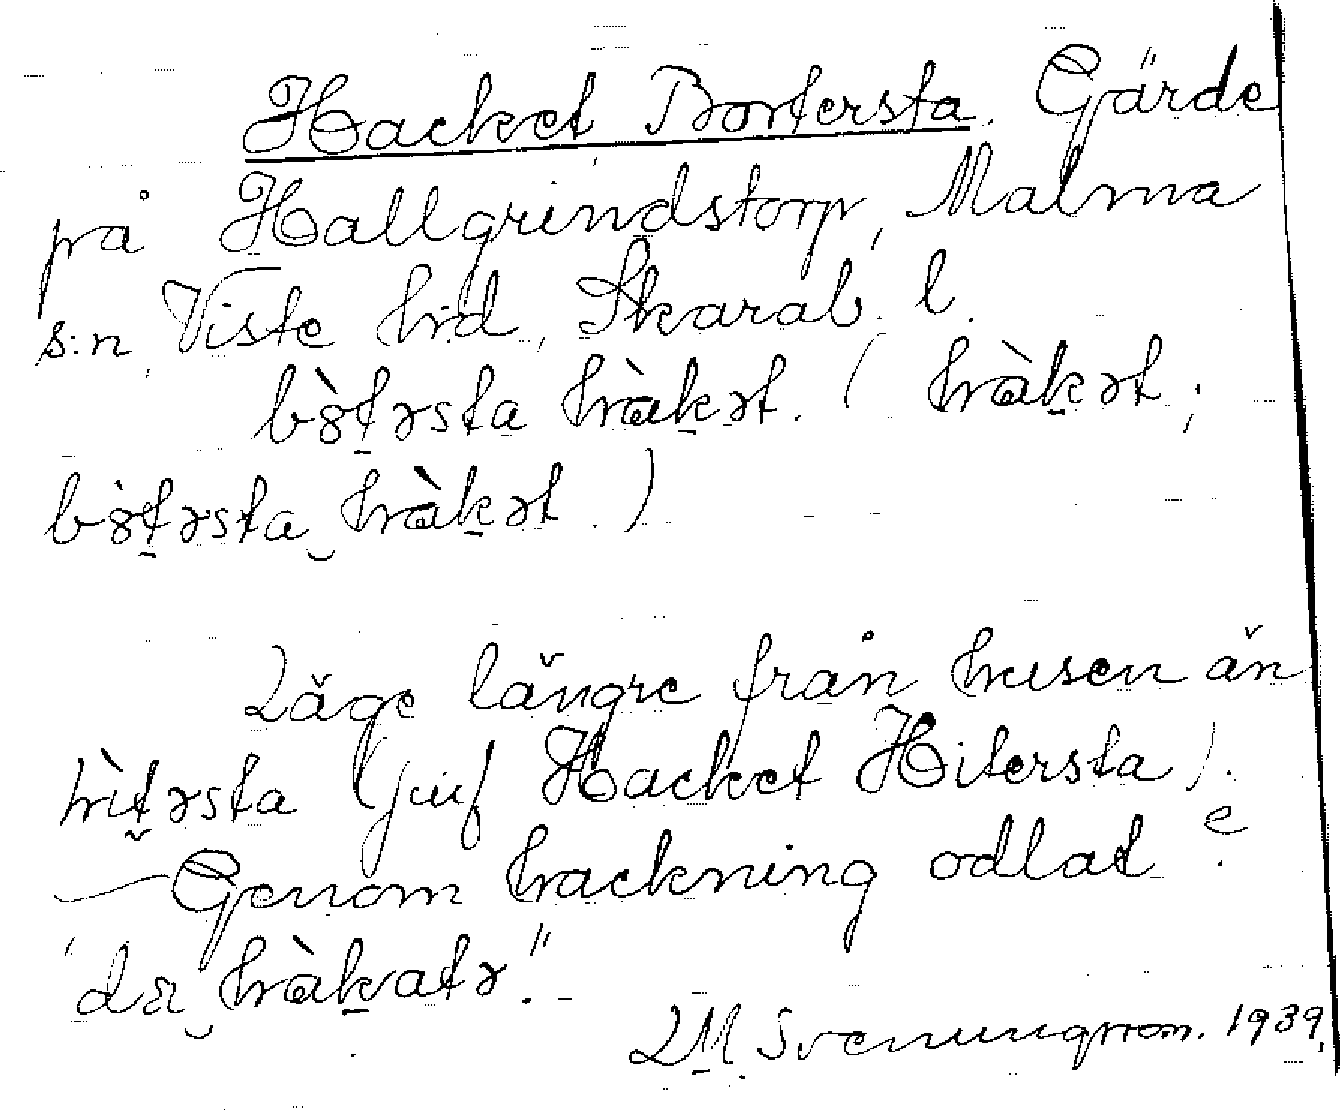 Hacket Bortersta. Gärde
på Hallgrindstorp, Malma
s:n, Viste hd, Skarab. l.
bòt̠ərsta hàk̠ət. ( hàk̠ət;
bòt̠ərsta‿hàk̠ət.)
Läge längre från husen än
hìtərsta (jmf Hacket Hitersta).
— Genom hackning odlat
"də‿hàkatə".
LM. Svenungsson. 1939.